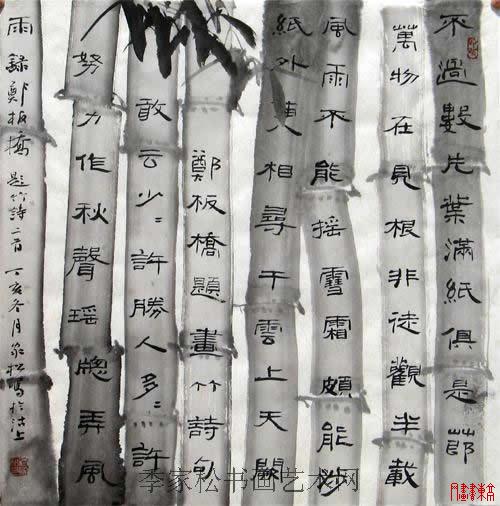 不過數片葉滿紙俱是節
萬物在見根非徒觀半載
風雨不能搖雪霜頗能涉
紙外更相尋干雲上天闕
鄭板橋題畫竹詩句
敢云少〻許勝人多〻許
努力作秋聲瑤牕弄風
雨錄鄭板橋題竹詩二首丁亥冬月家松寫於沽上
李家松书画艺术网